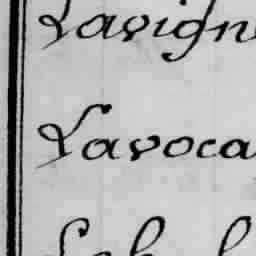 Lavign
Lavoca